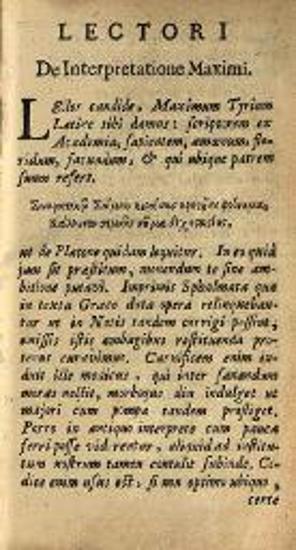 LECTORI
De Interpretatione Maximi.
Lector candide, Maximum Tyrium
Latine tibi damus: scriptorem ex
Academia, sapientem, amœnum, flo-
ridum, facundum, & qui ubique patrem
suum refert.
ut de Platone quidam loquitur. In eo quid
jam sit præstitum, monendum te sine am-
bitione putavi. Imprimis Sphalmata quæ
in textu Græco data opera relinqueban-
tur ut in Notis tandem corrigi possint,
omissis istis ambagibus restituenda pro-
tenus curavimus. Carnificem enim
ille medicus, qui inter sanandum
moras nectit, morbosque diu indulget ut
majori cum pompa tandem profliget.
Porro in antiquo interprete cum pauca
ferri posse videntur, aliquid ad institu-
tum nostrum tamen contulit subinde. Co-
dice enim usus est, si non optimo ubique,
certe